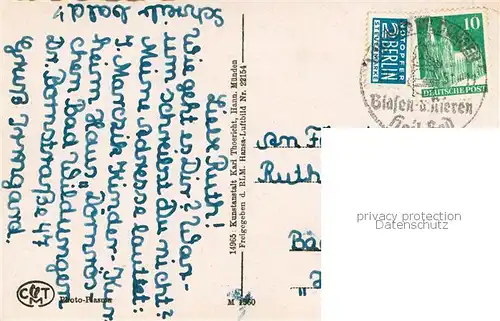 Liebe Ruth!
Wie geht es Dir? War-
um schreibst du nicht?
Meine Adresse lautet:
J. Kinder-Kur-
heim Haus "Dornrös-
chen" Bad Wildungen
Dr. Bornstraße 47
Gruß Irmgard.
Schreib bald!
14965 Kunstanstalt Karl Thoericht, Hann. Münden
Freigegeben d. RLM. Hansa-Luftbild Nr. 22154
NOTOPFER
2 BERLIN
STEUERMARKE
10
DEUTSCHE POST
Blasen-u. Nieren
Heil-Bad
An
Ruth
Ba
privacy protection
Datenschutz
CTM
Photo-Plasma
M 1860